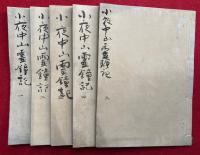 小夜中山霊鐘記 一
小夜中山霊鐘記 二
小夜中山霊鐘記
小夜中山霊鐘記
小夜中山霊鐘記 五